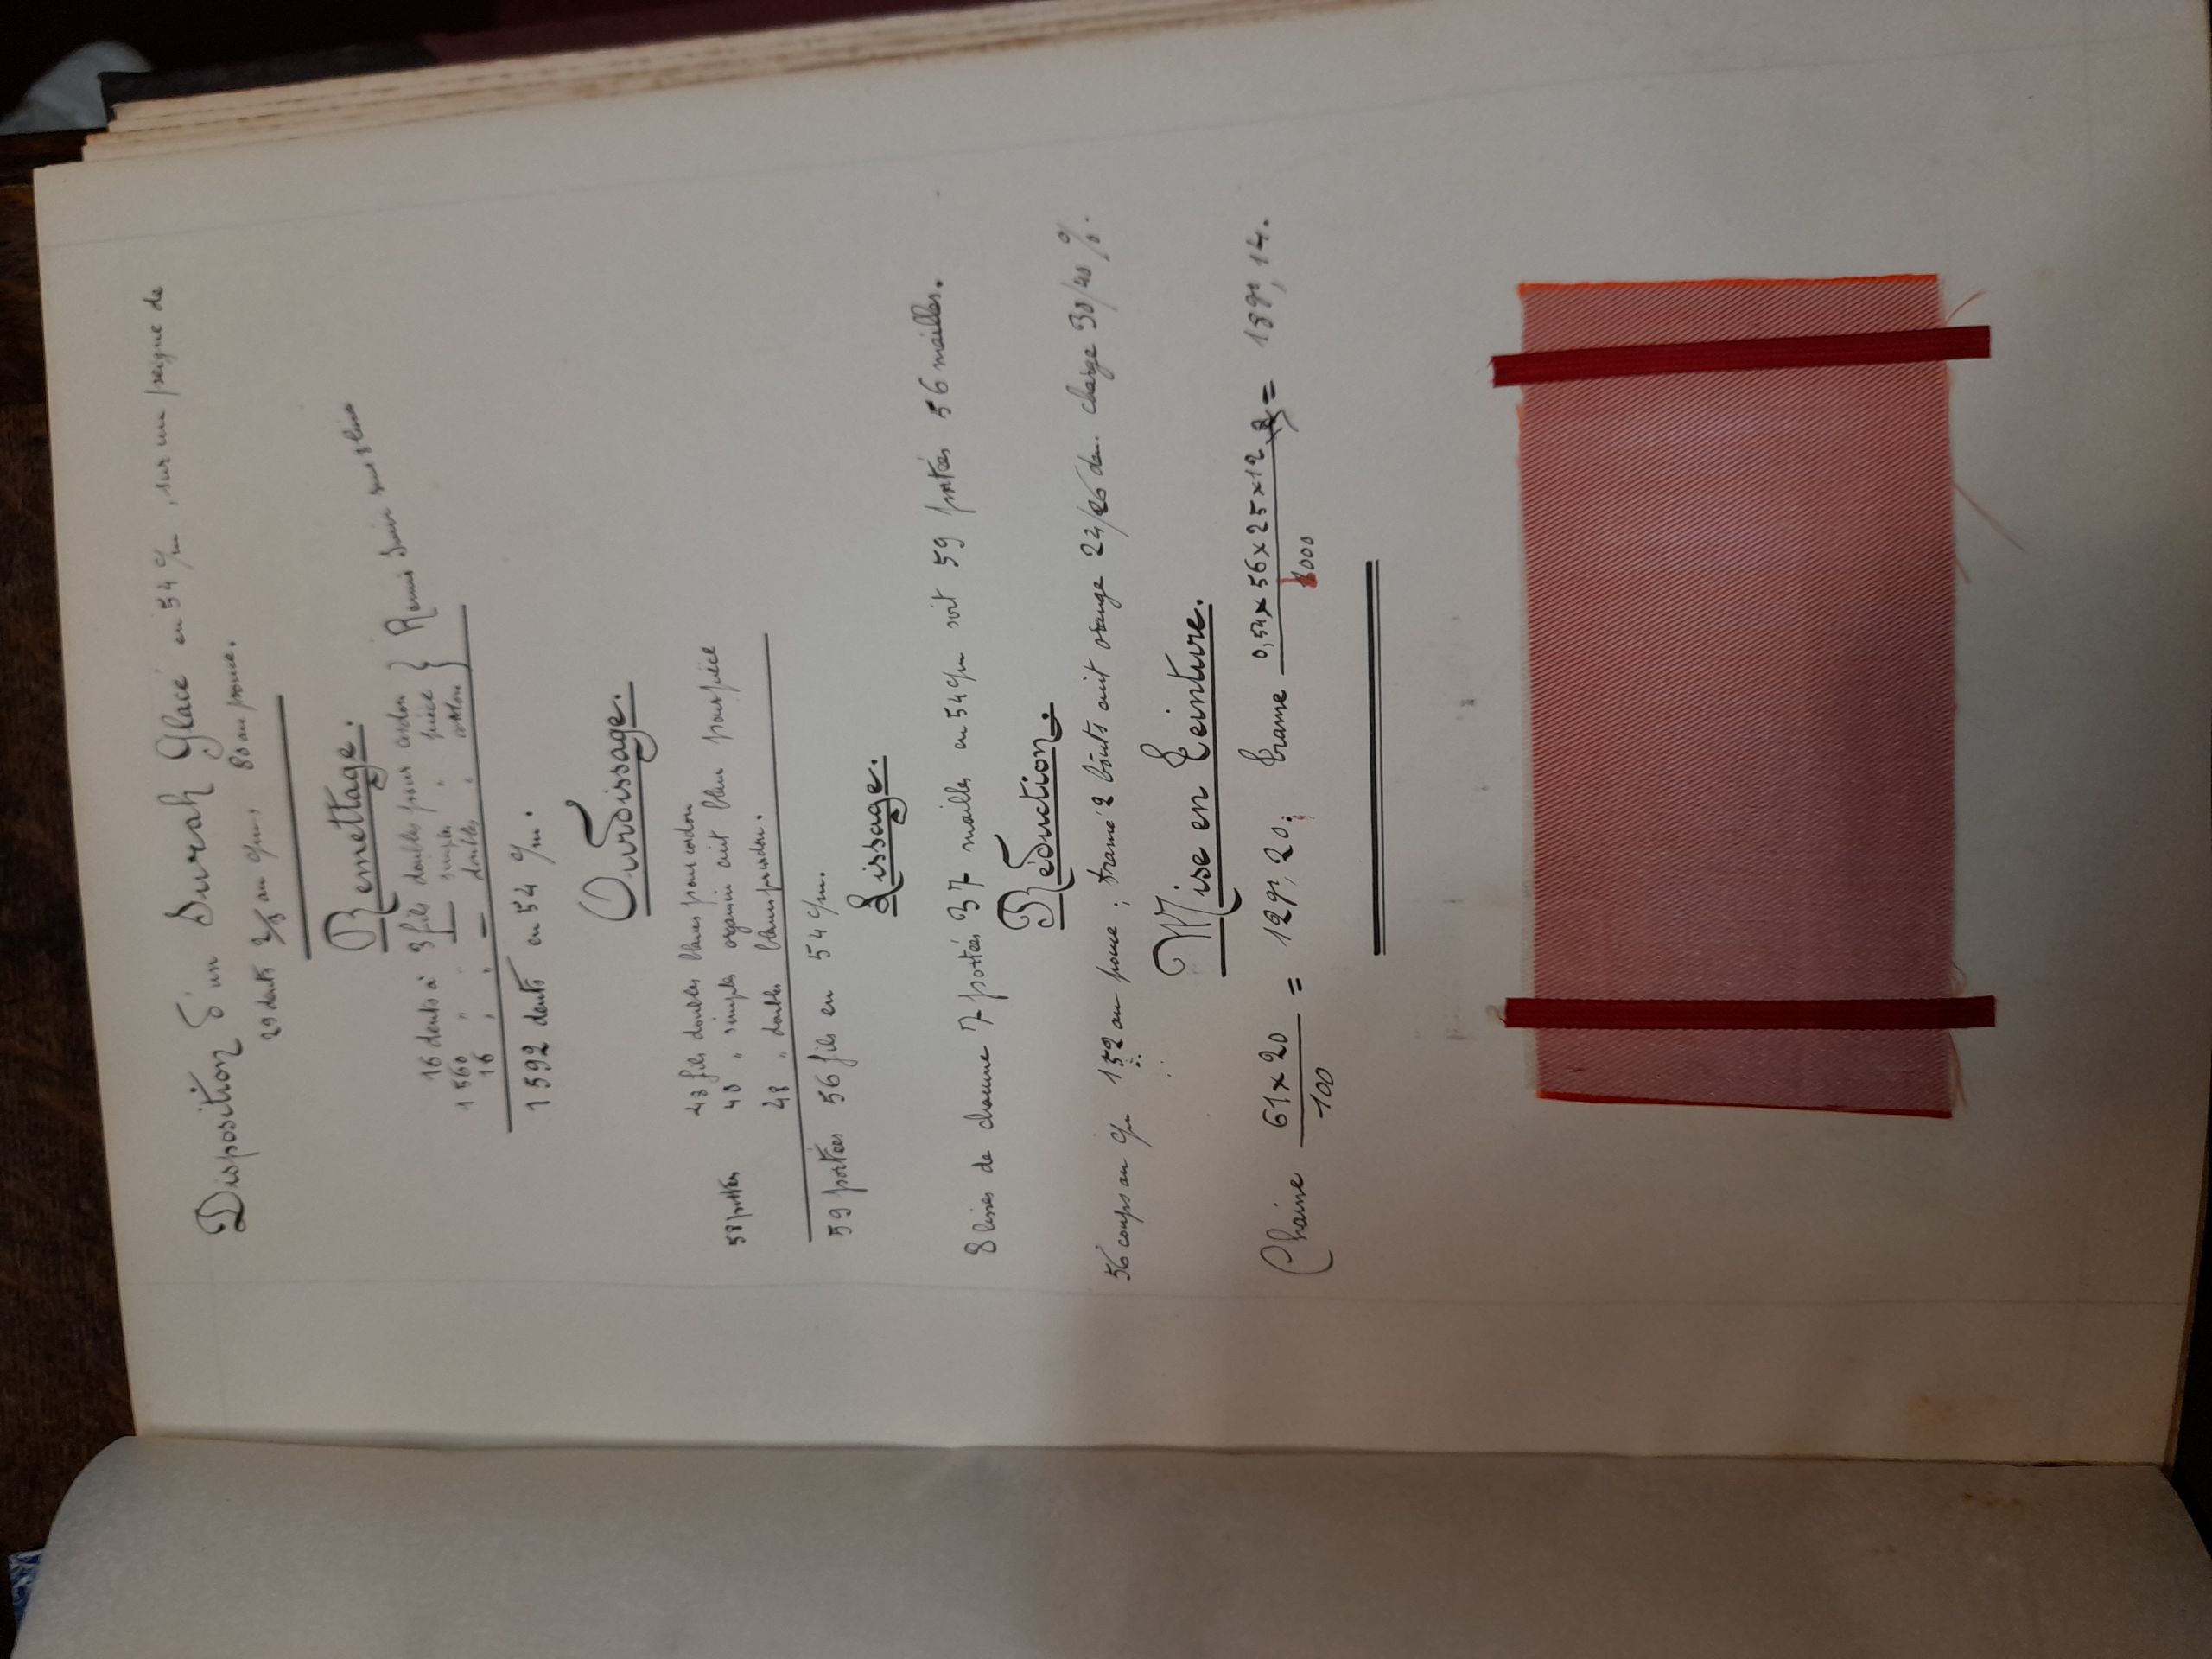 Disposition d'un Surah Glacé en 54 c/m, sur un peigne de
29 dents 2/3 au c/m, 80 au pouce.
Remettage.
16 dents à 3 fils doubles pour cordon
1560 " " simples " pièce
16 " " doubles " cordon
} Remis suivi sur 8 lisses
1592 dents en 54 c/m.
Ourdissage.
48 fils doubles blancs pour cordon
58 portées 40 " simples organsin cuit blanc pour pièce
48 " doubles blancs pr cordon.
59 portées 56 fils en 54 c/m.
Lissage.
8 lisses de chacune 7 portées 37 mailles en 54 c/m soit 59 portées 56 mailles.
Réduction.
56 coups au c/m 152 au pouce ; tramé 2 bouts cuit orange 24/26 den. charge 30/40 %.
Mise en Teinture.
Chaine 61 x 20 / 100 = 12gr, 20; trame 0,54 x 56 x 25 x 12 / 1000 = 18gr, 14.